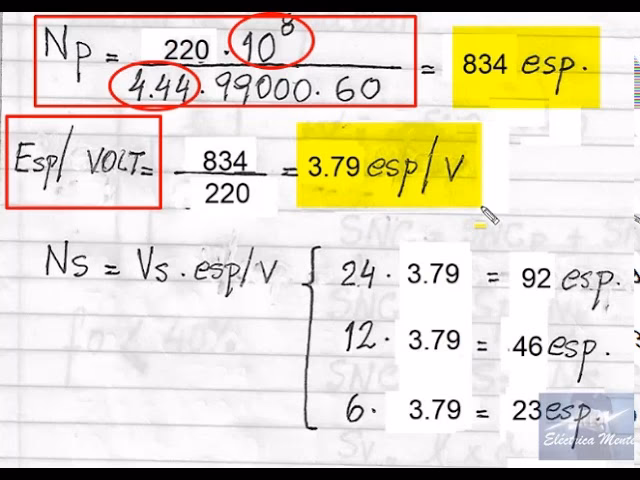 Np = 220 · 10⁸ / 4.44 · 99000 · 60 = 834 esp.
Esp/ VOLT = 834 / 220 = 3.79 esp/V
Ns = Vs · esp/V { 24 · 3.79 = 92 esp.
12 · 3.79 = 46 esp.
6 · 3.79 = 23 esp.
Eléctrica Mente